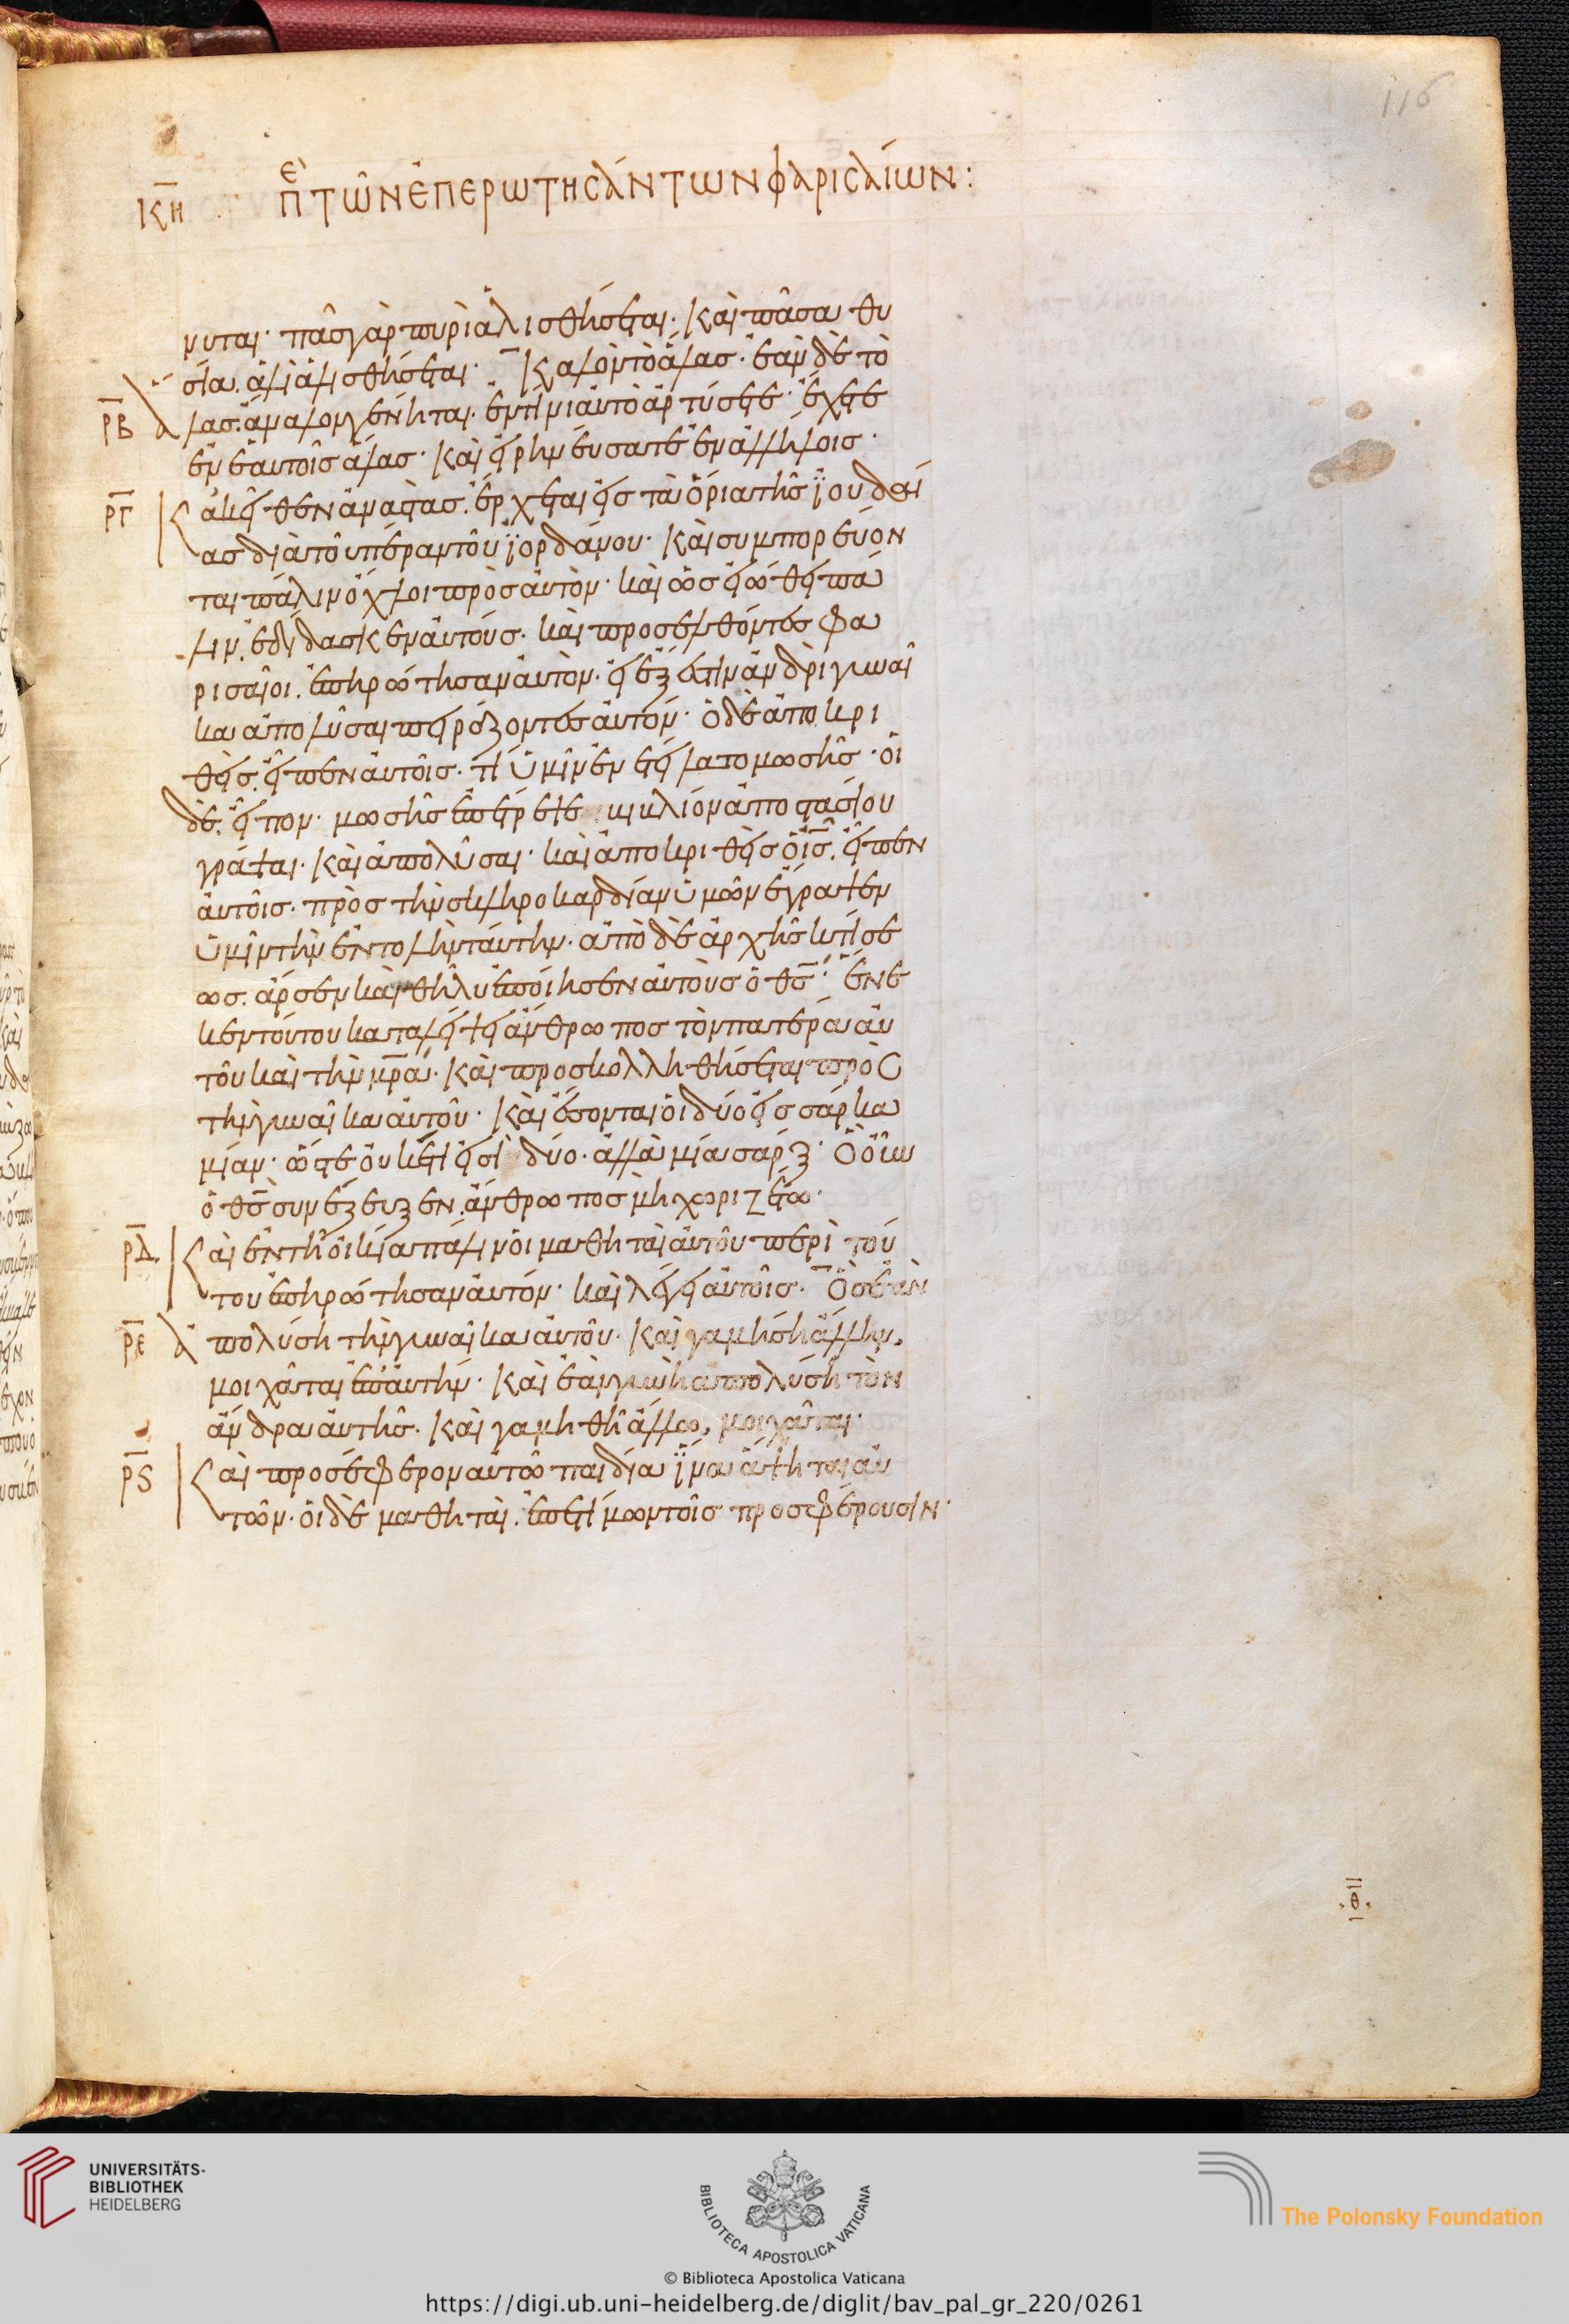 116
κη πε τῶν ἐπερωτησάντων φαρισαίων:
νυται· πᾶς γὰρ πυρὶ ἁλισθήσεται· καὶ πᾶσα θυ
σία ἁλὶ ἁλισθήσεται· καλὸν τὸ ἅλας· ἐὰν δὲ τὸ
ρβ ἅλας ἄναλον γένηται· ἐν τίνι αὐτὸ ἀρτύσετε· ἔχετε
ἐν ἑαυτοῖς ἅλας· καὶ εἰρηνεύσατε ἐν ἀλλήλοις·
ργ κακεῖθεν ἀναστὰς ἔρχεται εἰς τὰ ὅρια τῆς ϊουδαί
ας διὰ τοῦ πέραν τοῦ ϊορδάνου· καὶ συμπορεύον
ται πάλιν ὄχλοι πρὸς αὐτὸν· καὶ ὡς εἰώθει πά
λιν ἐδίδασκεν αὐτούς· καὶ προσελθόντες φα
ρισαῖοι ἐπηρώτησαν αὐτὸν· εἰ ἔξεστιν ἀνδρὶ γυναῖ
κα ἀπολῦσαι πειράζοντες αὐτόν· ὁ δὲ ἀποκρι
θεὶς εἶπεν αὐτοῖς· τί ὑμῖν ἐνετείλατο μωσῆς· οἱ
δὲ εἶπον· μωσῆς ἐπέτρεψε βιβλίον ἀποστασίου
γράψαι· καὶ ἀπολῦσαι· καὶ ἀποκριθεὶς ὁ ις εἶπεν
αὐτοῖς· πρὸς τὴν σκληροκαρδίαν ὑμῶν ἔγραψεν
ὑμῖν τὴν ἐντολὴν ταύτην· ἀπὸ δὲ ἀρχῆς κτίσε
ως ἄρσεν καὶ θῆλυ ἐποίησεν αὐτοὺς ὁ θς· ἕνε
κεν τούτου καταλείψει ἄνθρωπος τὸν πατέρα αὐ
τοῦ καὶ τὴν μρα· καὶ προσκολληθήσεται πρὸς
τὴν γυναῖκα αὐτοῦ· καὶ ἔσονται οἱ δύο εἰς σάρκα
μίαν· ὥστε οὐκέτι εἰσὶ δύο· ἀλλὰ μία σάρξ· ὃ οὖν
ὁ θς συνέζευξεν ἄνθρωπος μὴ χωριζέτω·
ρδ καὶ ἐν τῆ οἰκία πάλιν οἱ μαθηταὶ αὐτοῦ περὶ τού
του ἐπηρώτησαν αὐτόν· καὶ λέγει αὐτοῖς· ὃς ἐὰν
ρε ἀπολύση τὴν γυναῖκα αὐτοῦ· καὶ γαμήση ἄλλην,
μοιχᾶται ἐπ' αὐτήν· καὶ ἐὰν γυνὴ ἀπολύση τὸν
ἄνδρα αὐτῆς· καὶ γαμηθῆ ἄλλω, μοιχᾶται·
ρϛ καὶ προσέφερον αὐτῶ παιδία ϊνα ἅψηται αὐ
τῶν· οἱ δὲ μαθηταὶ ἐπετίμων τοῖς προσφέρουσιν·
·θ·
UNIVERSITÄTS-
BIBLIOTHEK
HEIDELBERG
BIBLIOTECA APOSTOLICA VATICANA
The Polonsky Foundation
© Biblioteca Apostolica Vaticana
https://digi.ub.uni-heidelberg.de/diglit/bav_pal_gr_220/0261